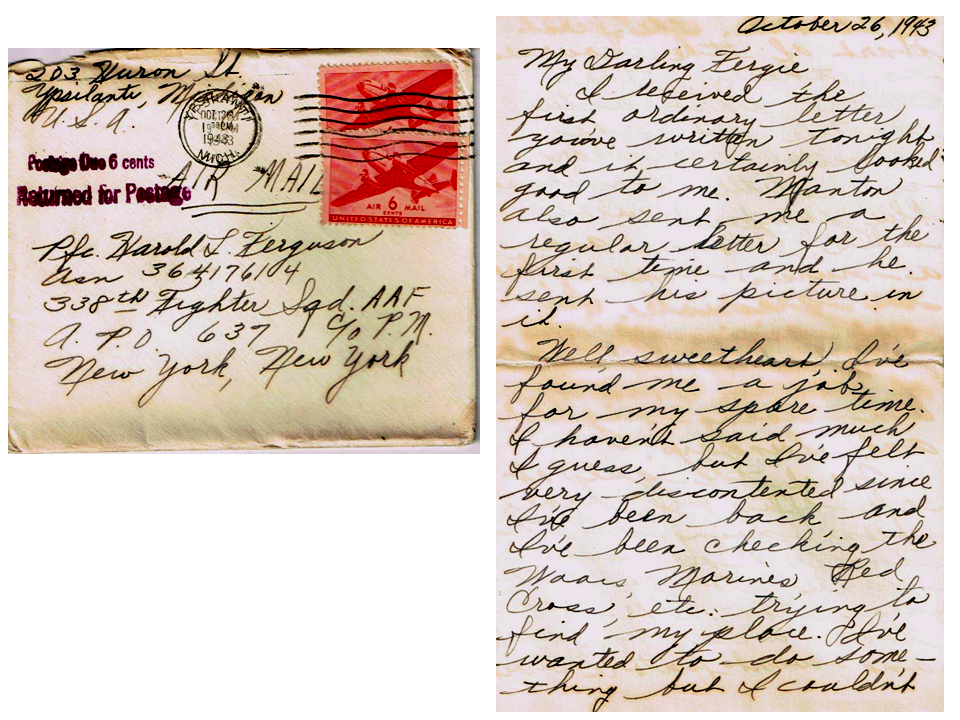 203 Huron St.
Ypsilanti, Michigan
U.S.A.
YPSILANTI
OCT 26
1943
MICH.
Postage Due 6 cents
Returned for Postage
AIR MAIL
AIR 6 MAIL
CENTS
UNITED STATES OF AMERICA
Pfc. Harold L. Ferguson
Asn 36417614
338th Fighter Sqd. AAF
A. P.O. 637 c/o P.M.
New York, New York
October 26, 1943
My Darling Fergie
I received the
first ordinary letter
you've written tonight
and it certainly looked
good to me. Manton
also sent me a
regular letter for the
first time and he
sent his picture in
it.
Well sweetheart, I've
found me a job
for my spare time.
I haven't said much
I guess, but I've felt
very discontented since
I've been back and
I've been checking the
Waacs, Marines, Red
Cross, etc. trying to
find my place. I've
wanted to do some-
thing but I couldn't